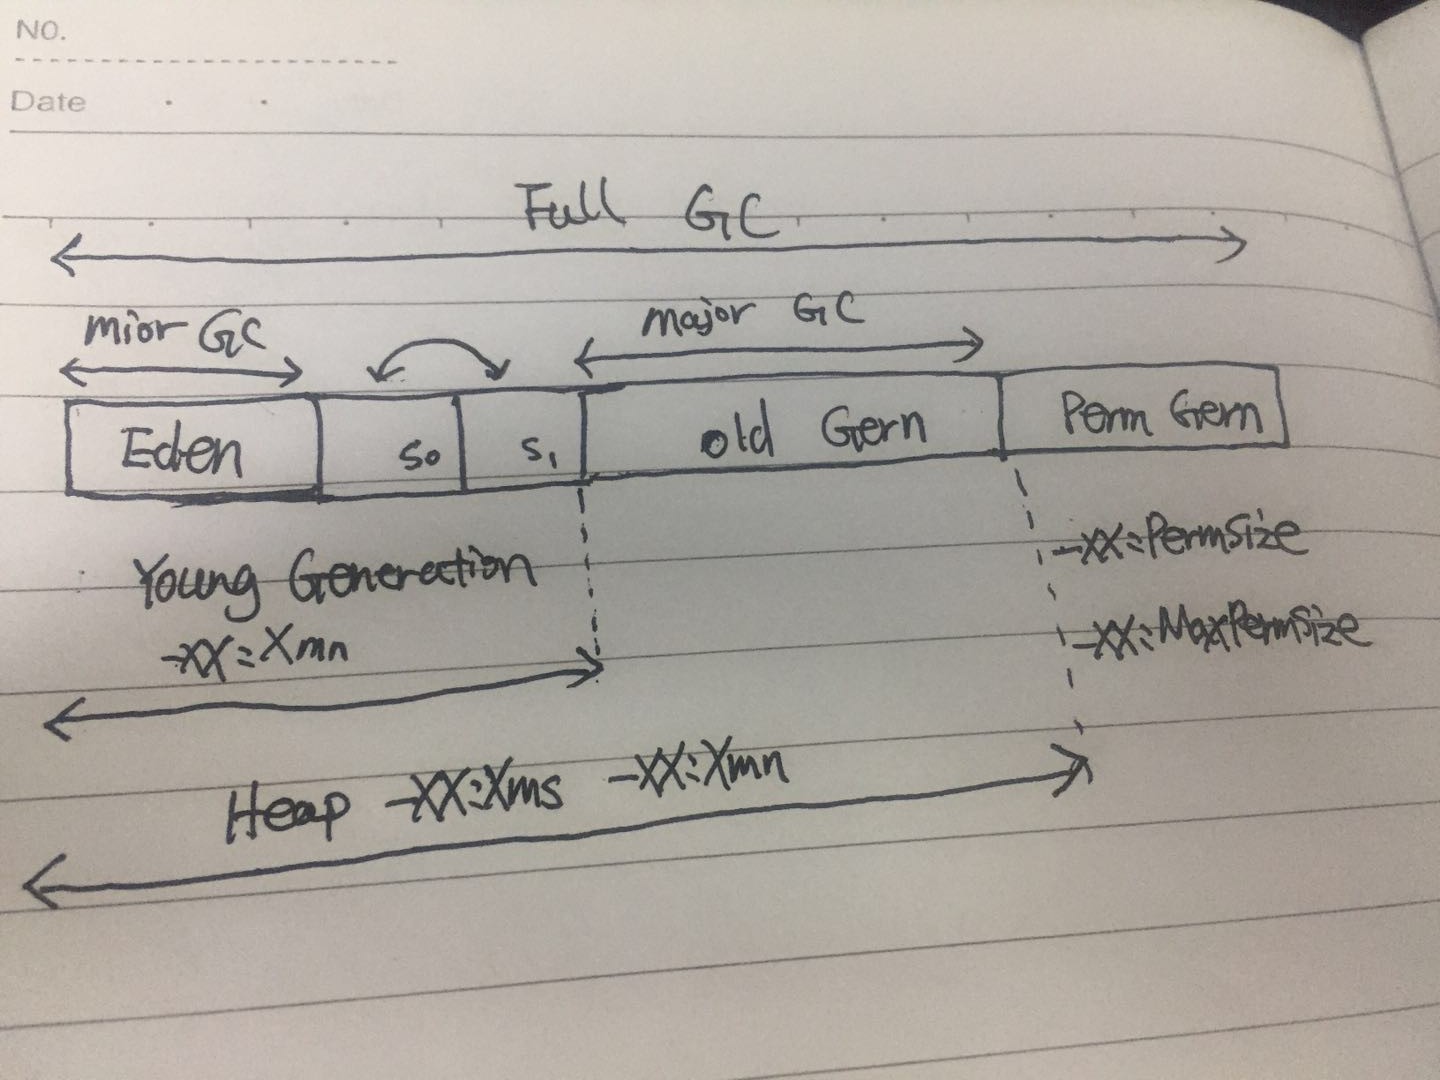 NO.
Date
Full GC
mior GC
major GC
Eden
S0
S1
old Gern
Perm Gern
Young Generation
-XX:Xmn
-XX:PermSize
-XX:MaxPermSize
Heap -XX:Xms -XX:Xmn